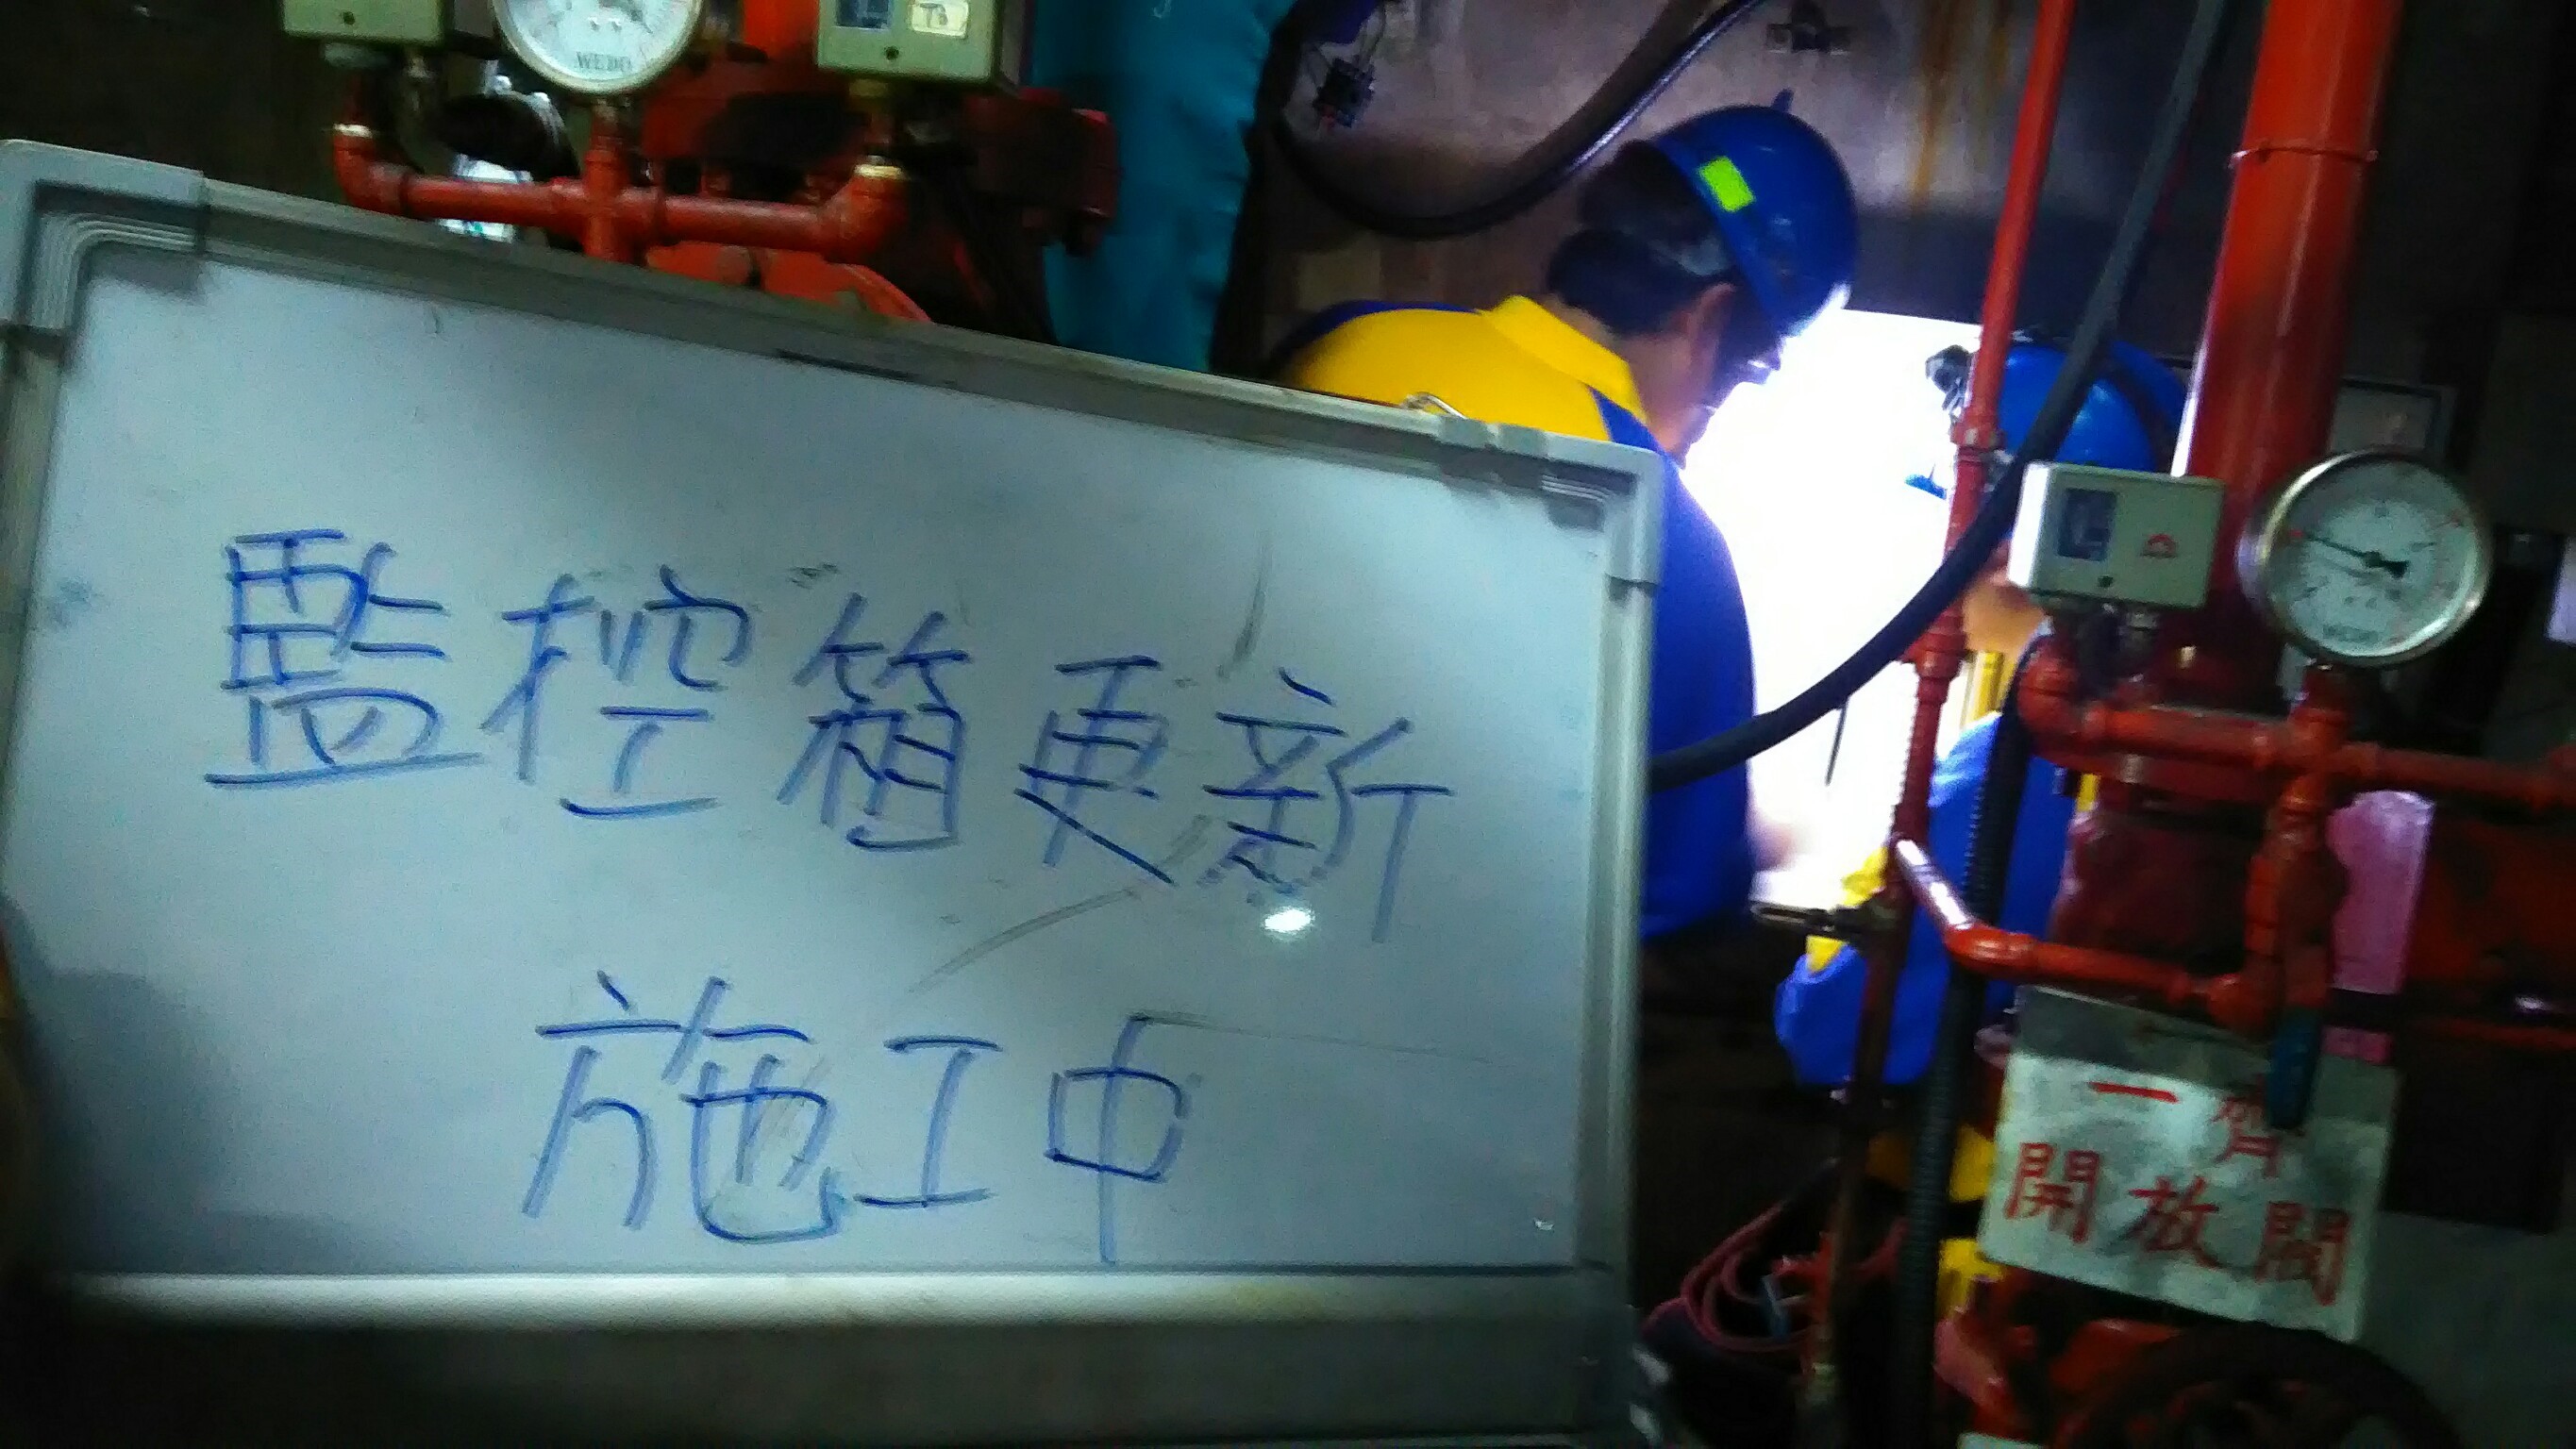 WEDO
TB
監控箱更新
施工中
WEDO
一齊
開放閥